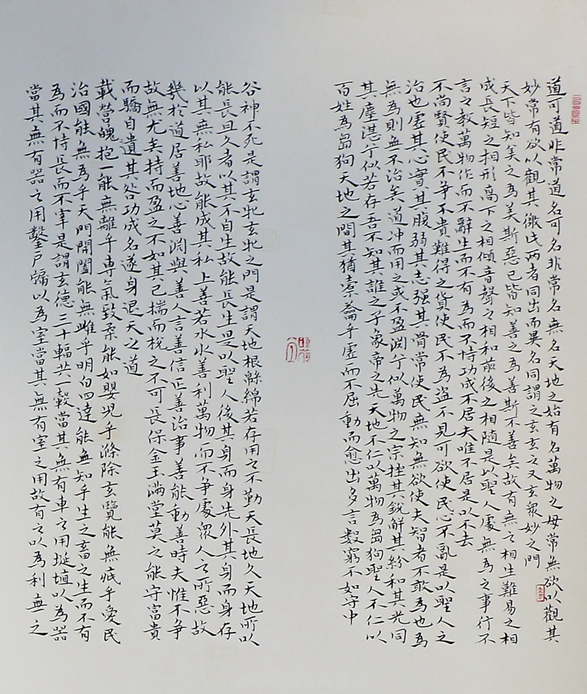 道可道非常道名可名非常名無天地之始有名萬物之母常無欲以觀其
妙常有欲以觀其徼此兩者同出而異名同謂之玄玄之又玄衆妙之門
天下皆知美之為美斯惡已皆知善之為善斯不善矣故有無之相生難易之相
成長短之相形高下之相傾音聲之相和前後之相隨是以聖人處無為之事行不
言之教萬物作而不辭生而不有為而不恃功成不居夫唯不居是以不去
不尚賢使民不爭不貴難得之貨使民不為盜不見可欲使民心不亂是以聖人之
治也虛其心實其腹弱其志強其骨常使民無知無欲使夫智者不敢為也為
無為則無不治矣道冲而用之或不盈淵乎似萬物之宗挫其銳解其紛和其光同
其塵湛兮似若存吾不知其誰之子象帝之先天地不仁以萬物為芻狗聖人不仁以
百姓為芻狗天地之間其猶橐籥乎虛而不屈動而愈出多言數窮不如守中
谷神不死是謂玄牝玄牝之門是謂天地根綿綿若存用之不勤天長地久天地所以
能長且久者以其不自生故能長生是以聖人後其身而身先外其身而身存
以其無私耶故能成其私上善若水水善利萬物而不爭處衆人之所惡故
幾於道居善地心善淵與善人言善信正善治事善能動善時夫惟不爭
故無尤矣持而盈之不如其已揣而梲之不可長保金玉滿堂莫之能守富貴
而驕自遺其咎功成名遂身退天之道
載營魄抱一能無離乎專氣致柔能如嬰兒乎滌除玄覽能無疵乎愛民
治國能無為乎天門開闔能無雌乎明白四達能無知乎生之畜之生而不有
為而不恃長而不宰是謂玄德三十輻共一轂當其無有車之用埏埴以為器
當其無有器之用鑿戶牖以為室當其無有室之用故有之以為利無之